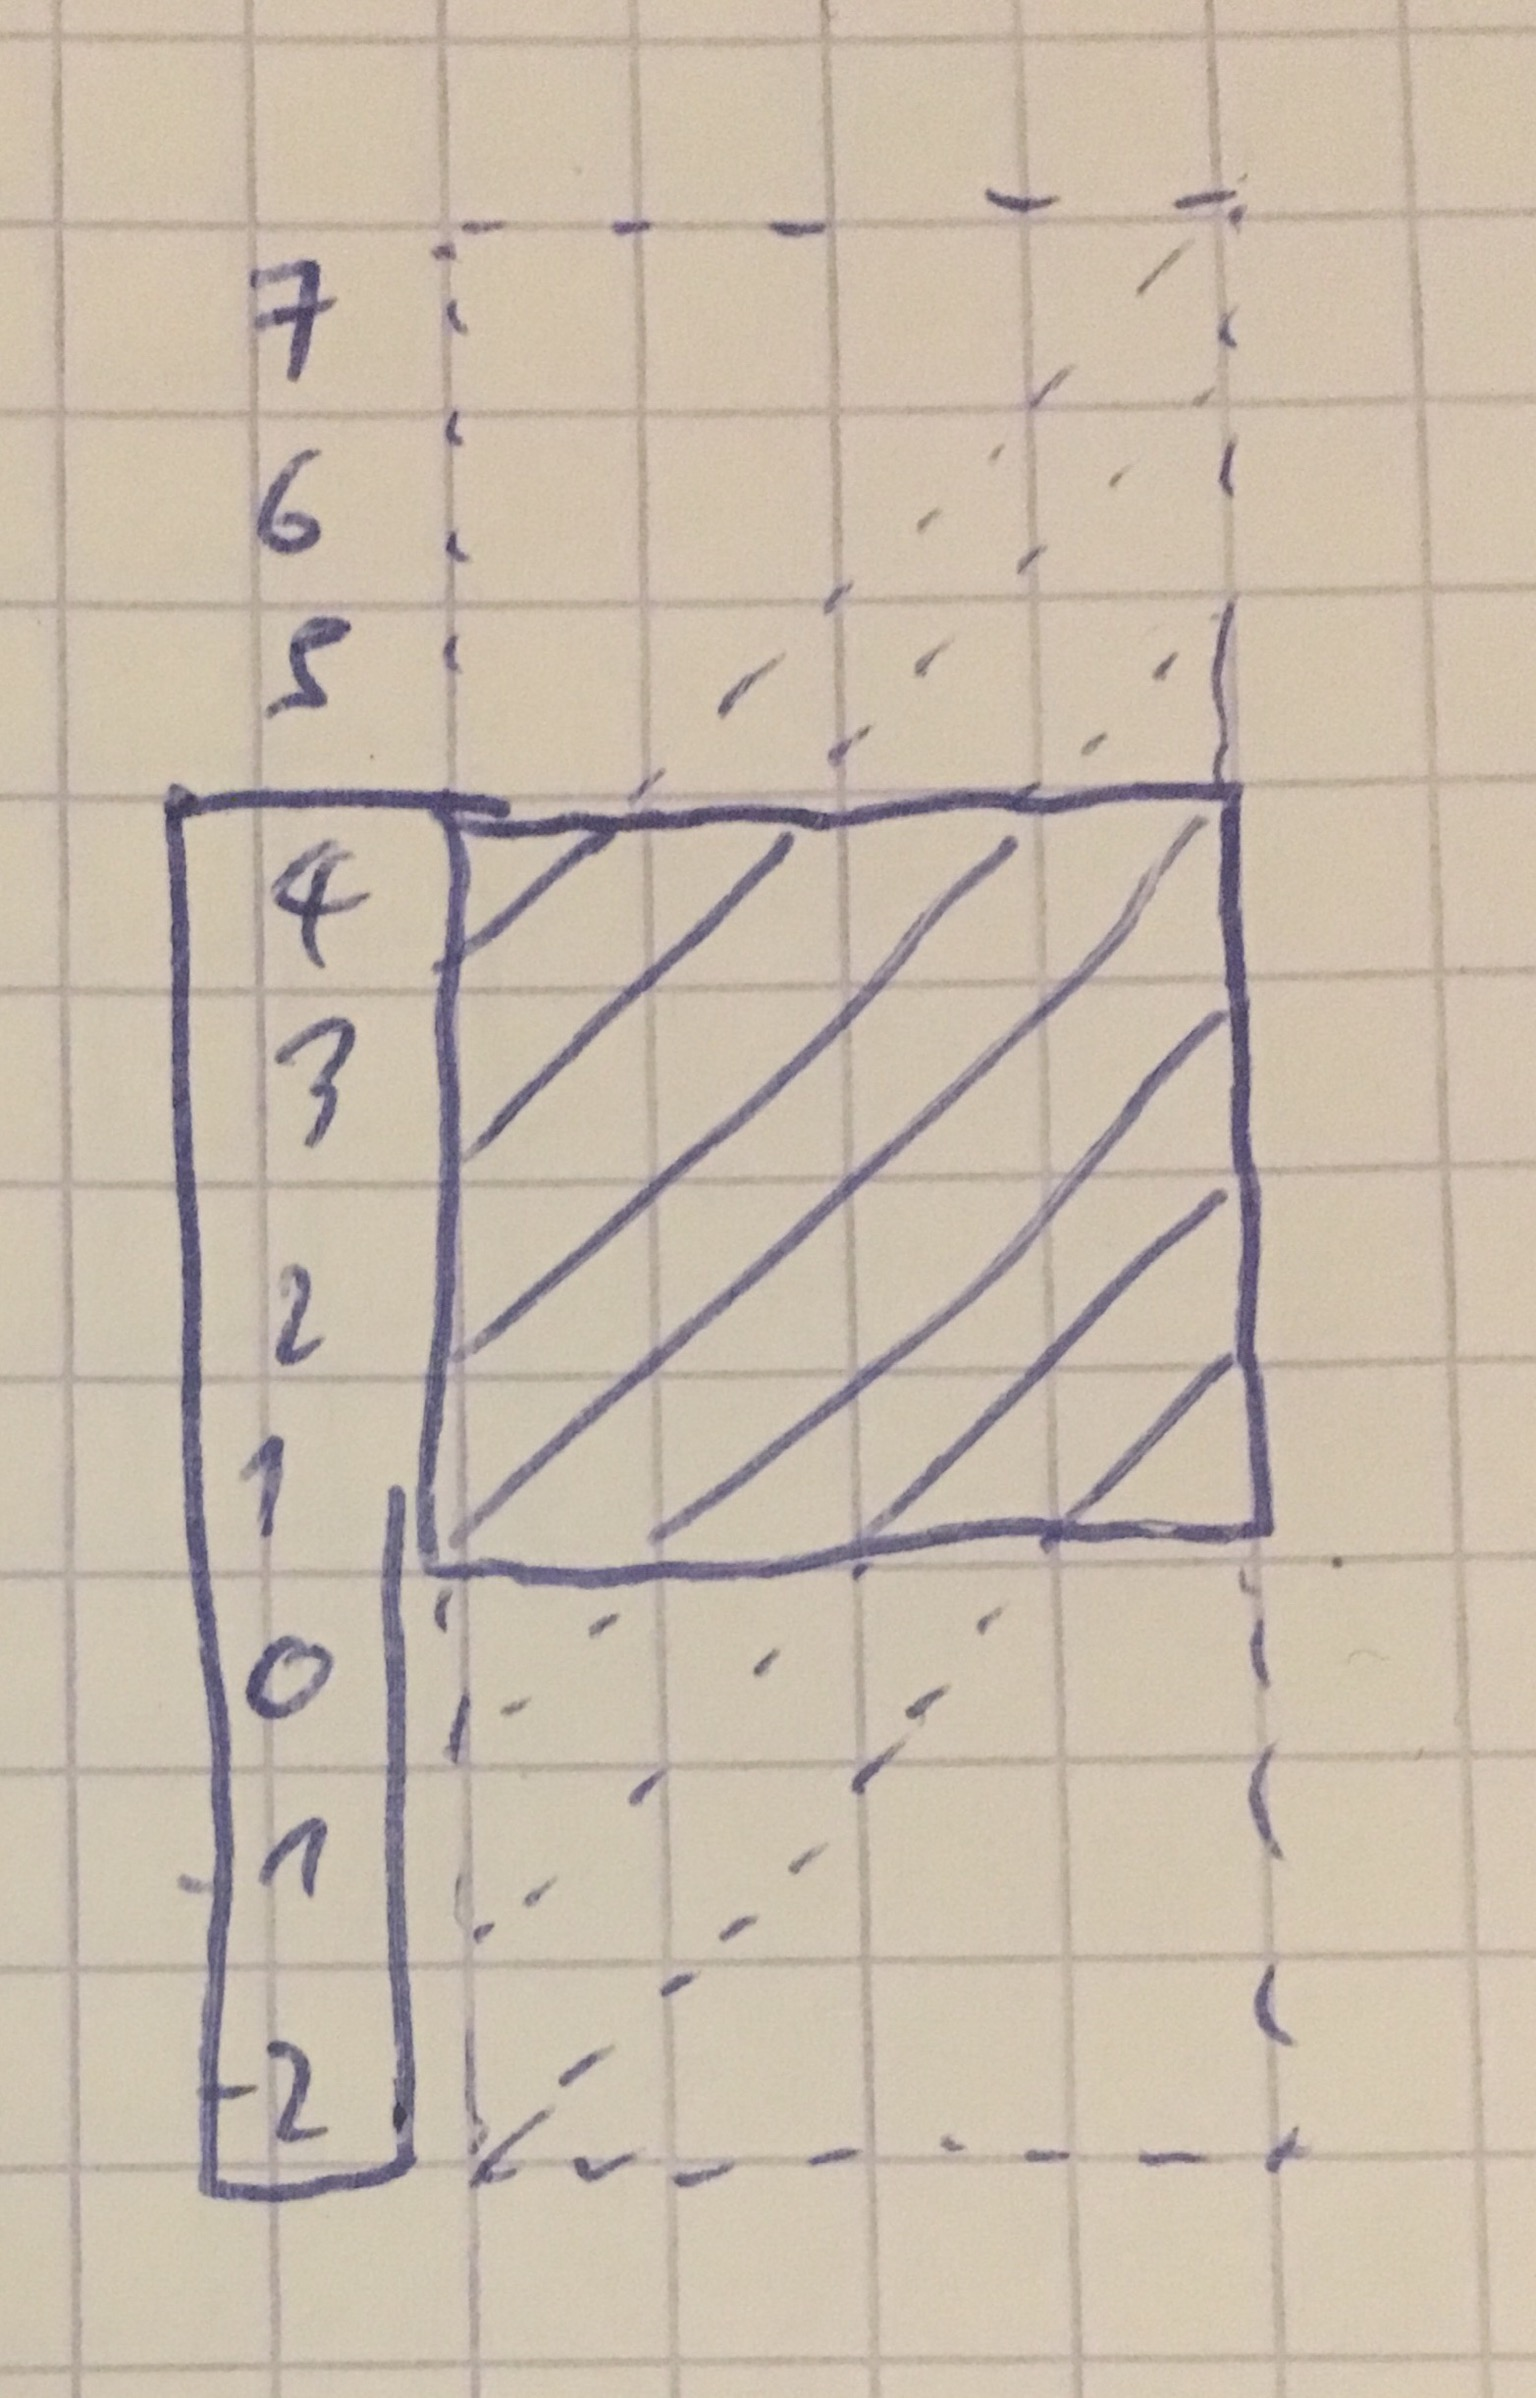 7
6
5
4
3
2
1
0
-1
-2